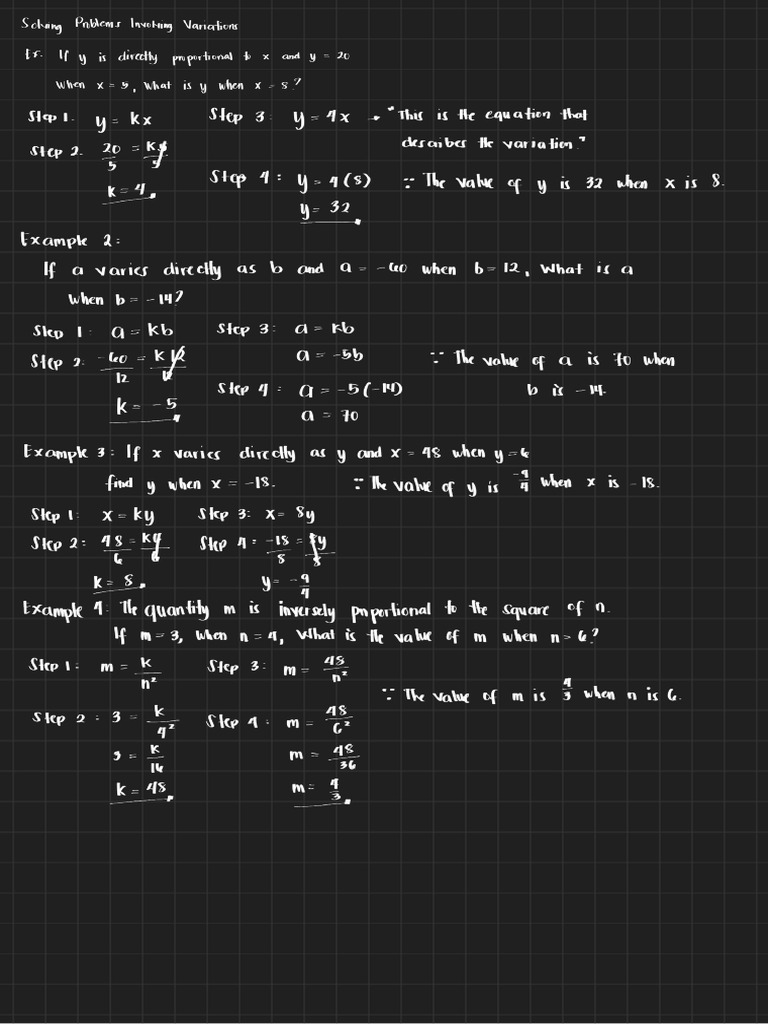 Solving Problems Involving Variations
Ex. If y is directly proportional to x and y = 20
when x = 5, what is y when x = 8?
Step 1. y = kx
Step 2. 20/5 = k5/5
k = 4
Step 3: y = 4x → "This is the equation that
describes the variation."
Step 4: y = 4(8)
y = 32
∵ The value of y is 32 when x is 8.
Example 2:
If a varies directly as b and a = -60 when b = 12, what is a
when b = -14?
Step 1: a = kb
Step 2: -60/12 = k12/12
k = -5
Step 3: a = kb
a = -5b
Step 4: a = -5(-14)
a = 70
∵ The value of a is 70 when
b is -14.
Example 3: If x varies directly as y and x = 48 when y = 6
find y when x = -18.
∵ The value of y is -9/4 when x is -18.
Step 1: x = ky
Step 2: 48/6 = k6/6
k = 8
Step 3: x = 8y
Step 4: -18/8 = 8y/8
y = -9/4
Example 4: The quantity m is inversely proportional to the square of n.
If m = 3, when n = 4, what is the value of m when n = 6?
Step 1: m = k/n²
Step 2: 3 = k/4²
3 = k/16
k = 48
Step 3: m = 48/n²
Step 4: m = 48/6²
m = 48/36
m = 4/3
∵ The value of m is 4/3 when n is 6.